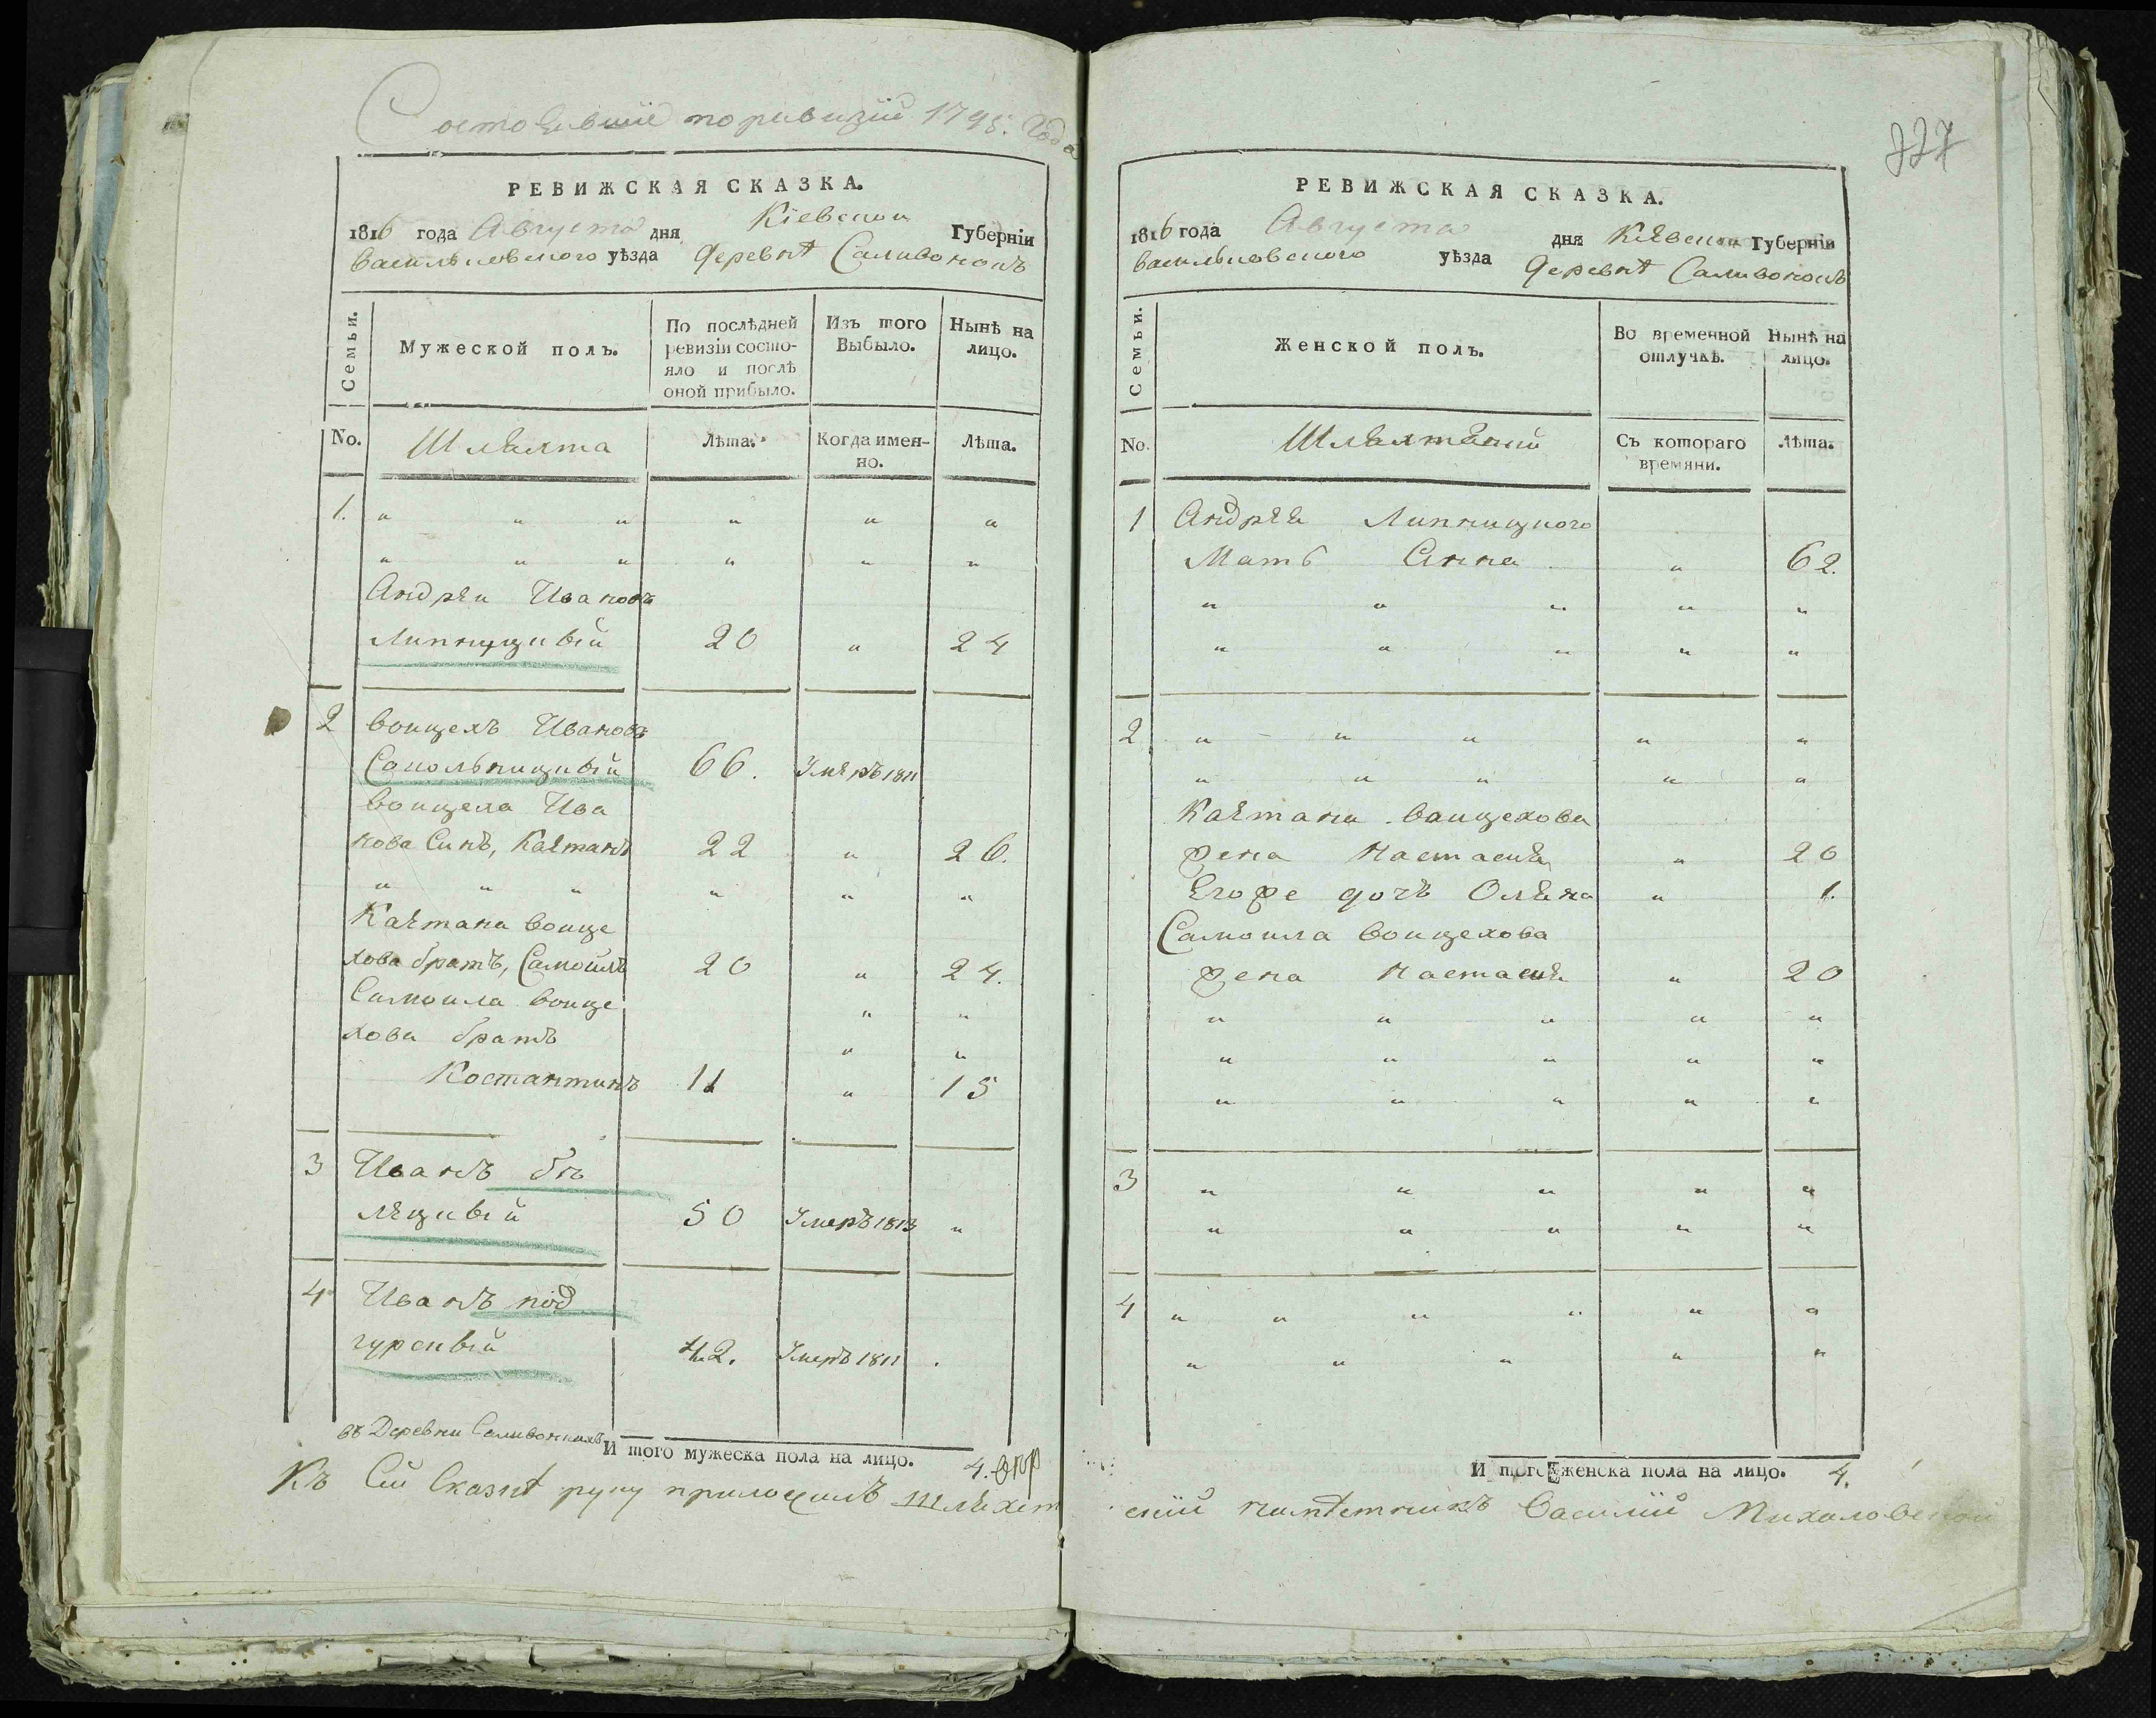 Состоявшие по ревизии 1795. Года
РЕВИЖСКАЯ СКАЗКА.
1816 года Августа дня Кіевской Губерніи
Васильковского уѣзда деревнѣ Саливонокъ
Семьи.
Мужеской полъ.
По послѣдней ревизіи состо-
яло и послѣ
оной прибыло.
Изъ того
Выбыло.
Нынѣ на
лицо.
No.
Шляхта
Лѣта.
Когда имен-
но.
Лѣта.
1. " " " " " "
" " " " " "
Андрѣй Ивановъ
Липницкій 20 " 24
2 Воицехъ Ивановъ
Сокольницкій 66. Умеръ 1811
Воицеха Ива
нова Синъ, Каетанъ 22 " 26.
" " " " " "
Каетана Воице
хова братъ, Самойлъ 20 " 24.
Самоила Воице " "
хова братъ " "
Костантинъ 11 " 15
3 Иванъ Бѣ
лецкій 50 Умеръ 1813 "
4 Иванъ под
гурскій 42. Умеръ 1811 .
въ Деревни Саливонкахъ
И того мужеска пола на лицо. 4.
Къ Сій Сказкѣ руку приложилъ шляхет
327
РЕВИЖСКАЯ СКАЗКА.
1816 года Августа дня Кіевской Губерніи
Васильковского уѣзда деревнѣ Саливонокъ
Семьи.
Женской полъ.
Во временной
отлучкѣ.
Нынѣ на
лицо.
No.
Шляхтяний
Съ котораго
времяни.
Лѣта.
1 Андрея Липницкого
Мать Анна " 62.
" " " " "
" " " " "
2 " " " " "
" " " " "
Каетана Воицехова
жена Настасия " 20
Егоже дочъ Оляна " 1.
Самоила Воицехова
жена Настасия " 20
" " " " "
" " " " "
" " " " "
3 " " " " "
" " " " "
4 " " " " " "
" " " " "
И того женска пола на лицо. 4.
ский намѣстникъ Василий Михаловской